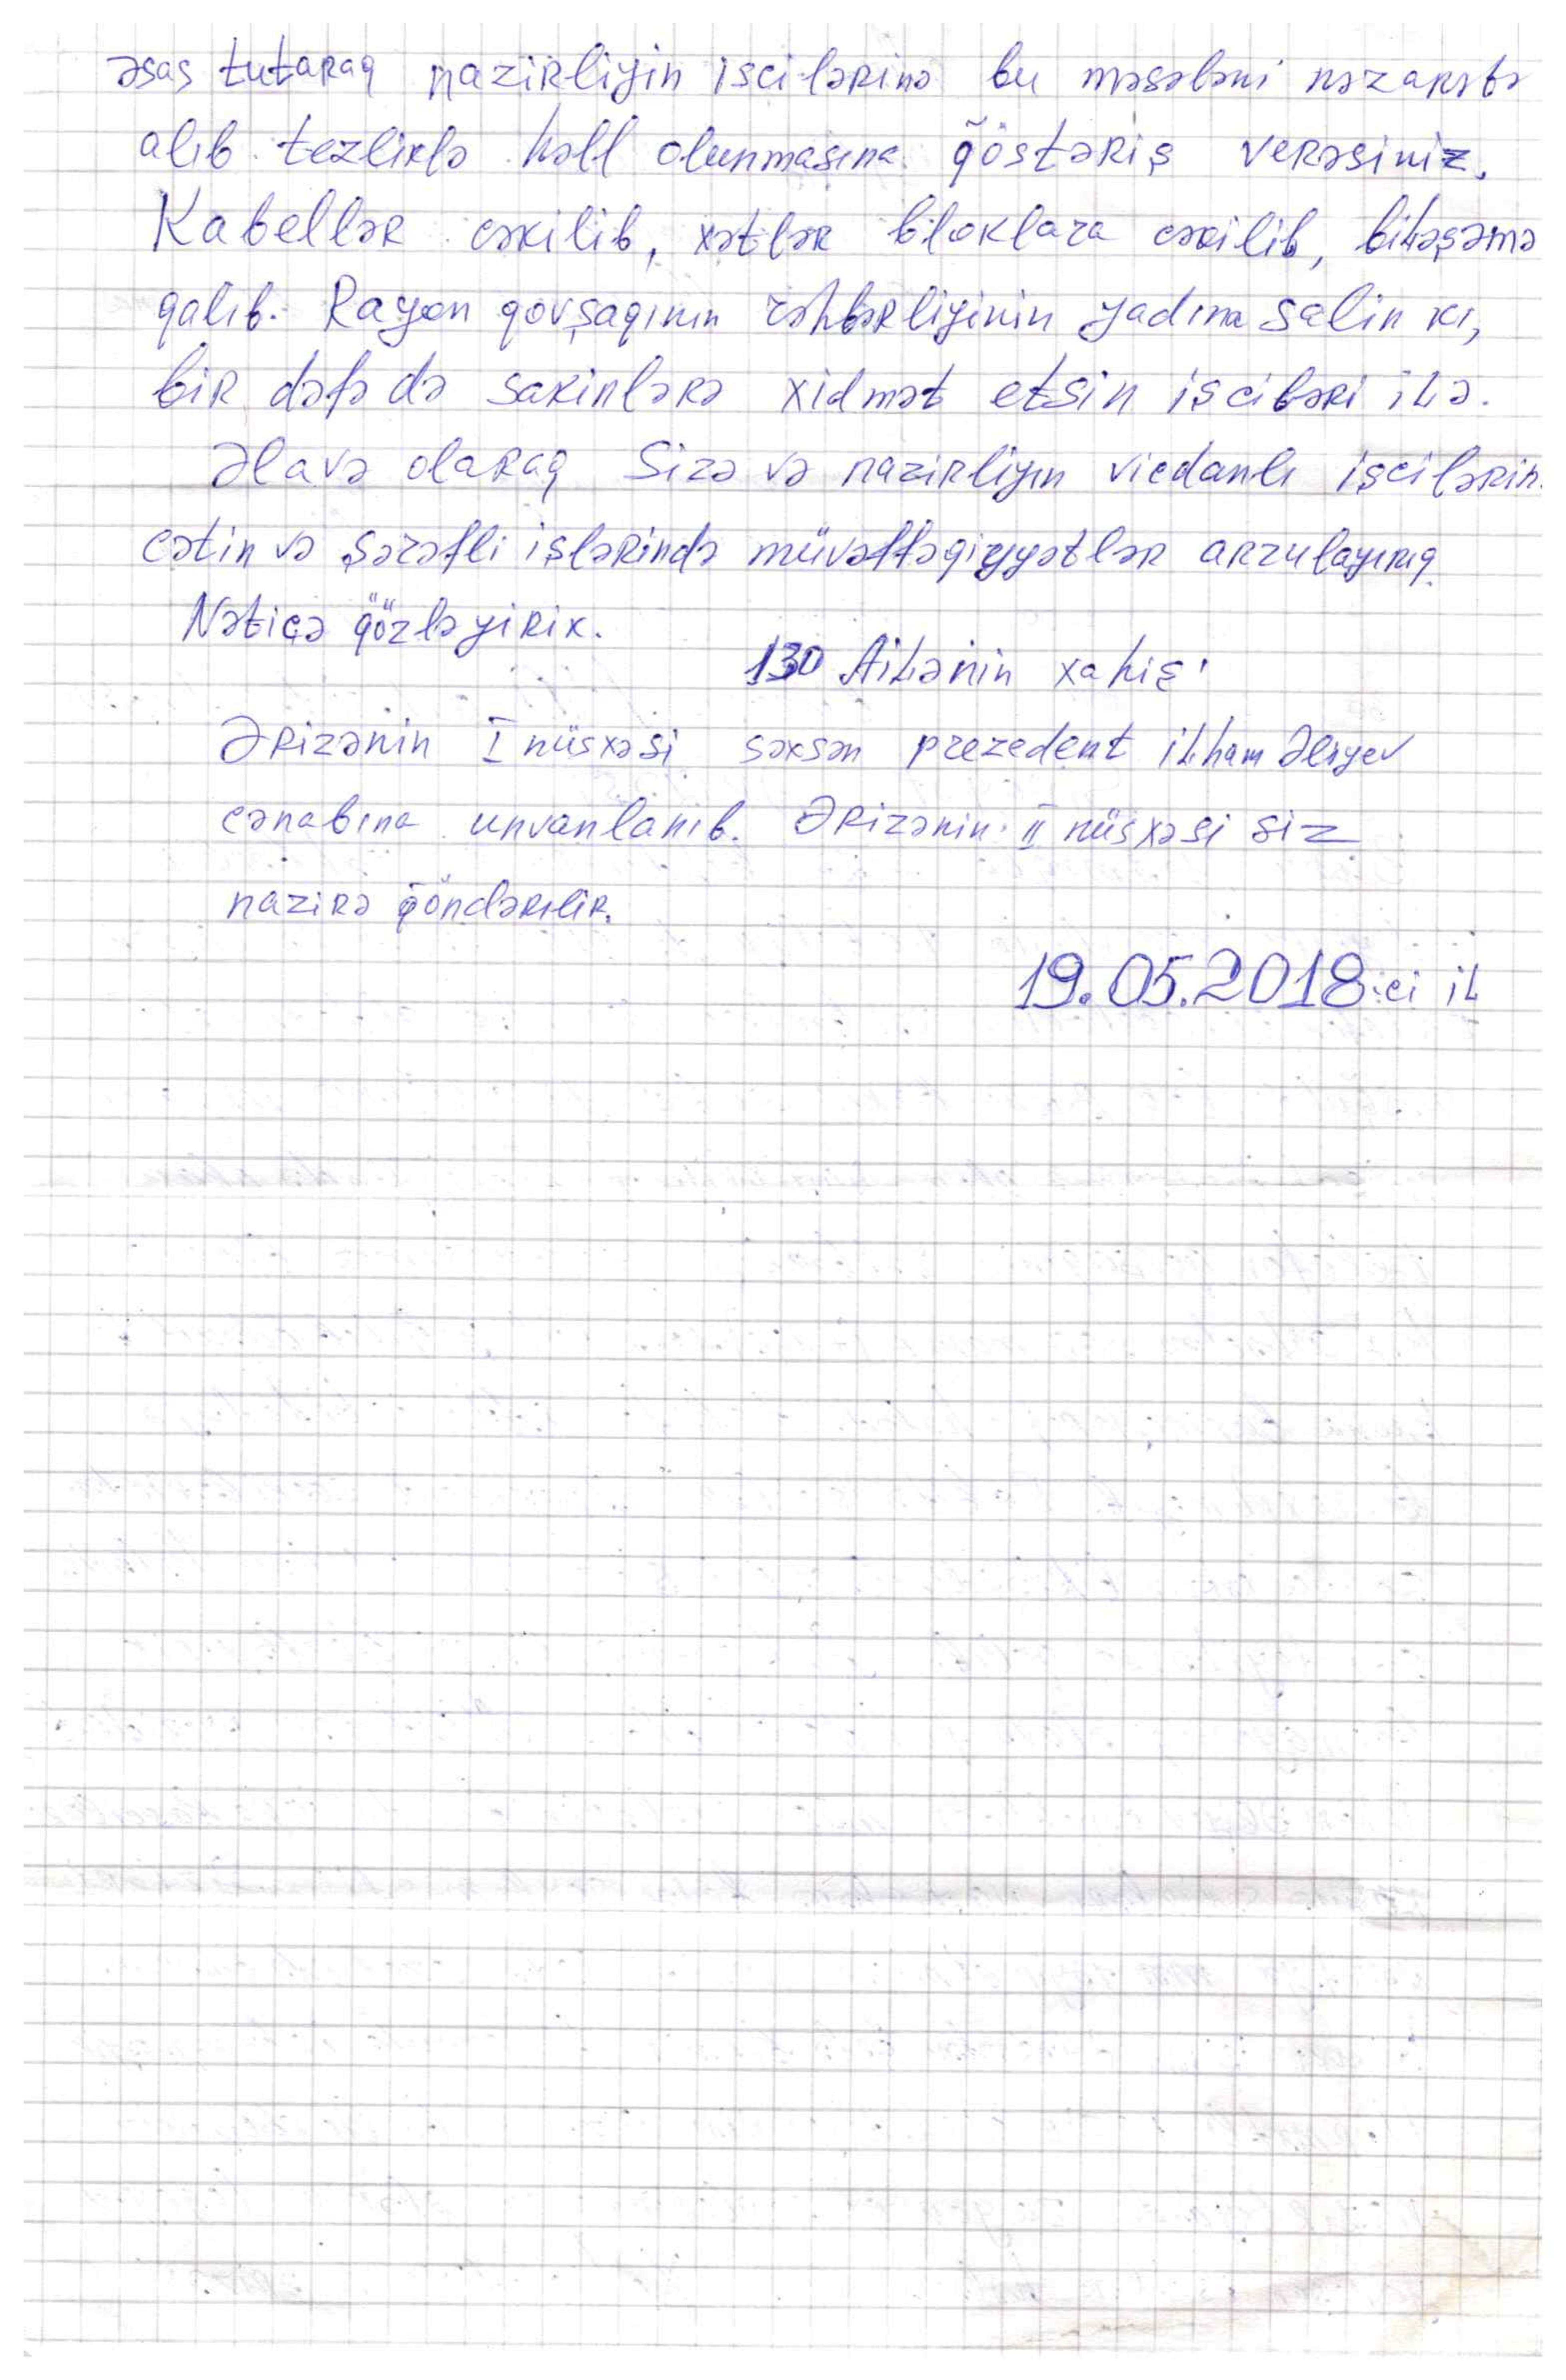 əsas tutaraq nazirliyin iscilərinə bu məsələni nəzarətə
alıb tezliklə həll olunmasına göstəriş verəsiniz.
Kabellər cəkilib, xətlər bloklara cəkilib, biləşəmə
qalıb. Rayon qovşaqının rəhbərliyinin yadına salin kı,
bir dəfə də sakinlərə xidmət etsin işciləri ilə.
Əlavə olaraq Sizə və nazirliyın vicdanlı işcilərin
cətin və şərəfli işlərində müvəffəqiyyətlər arzulayırıq.
Nəticə gözləyirik.
130 Ailənin xahiş'
Ərizənin I nüsxəsi səxsən prezedent ilham Əlıyev
cənabına unvanlanıb. Ərizənin II nüsxəsi siz
nazirə göndərılir.
19.05.2018-ci il